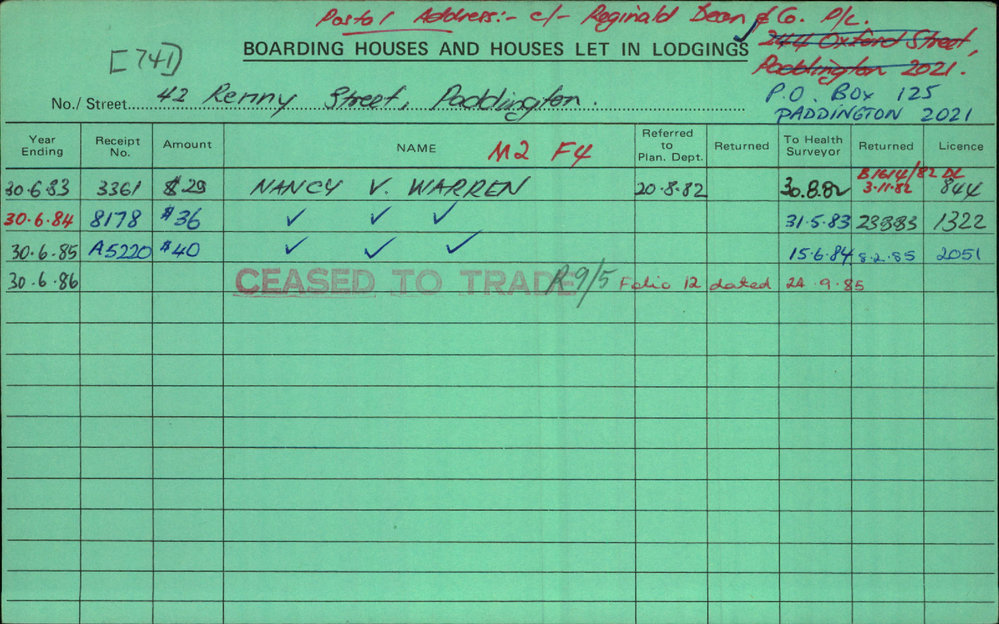 Postal Address:- c/- Reginald Dean & Co. P/L.
[741]
BOARDING HOUSES AND HOUSES LET IN LODGINGS
244 Oxford Street,
Paddington 2021.
No./Street 42 Renny Street, Paddington.
P.O. BOX 125
PADDINGTON 2021
Year Ending Receipt No. Amount NAME M2 F4 Referred to Plan. Dept. Returned To Health Surveyor Returned Licence
B1614/82 DL
30.6.83 3361 $29 NANCY V. WARREN 20.8.82 30.8.82 3.11.82 844
30.6.84 8178 $36 ✓ ✓ ✓ 31.5.83 1322
30.6.85 A5220 $40 ✓ ✓ ✓ 15.6.84 8.2.85 2051
30.6.86 CEASED TO TRADE R9/5 Folio 12 dated 24.9.85